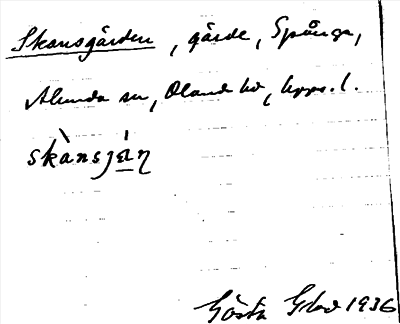 Skansgärden, gärde, Spånga,
Alunda sn, Oland hd, Upps. l.
skànsjá̱ṇ
Gösta Glad 1936